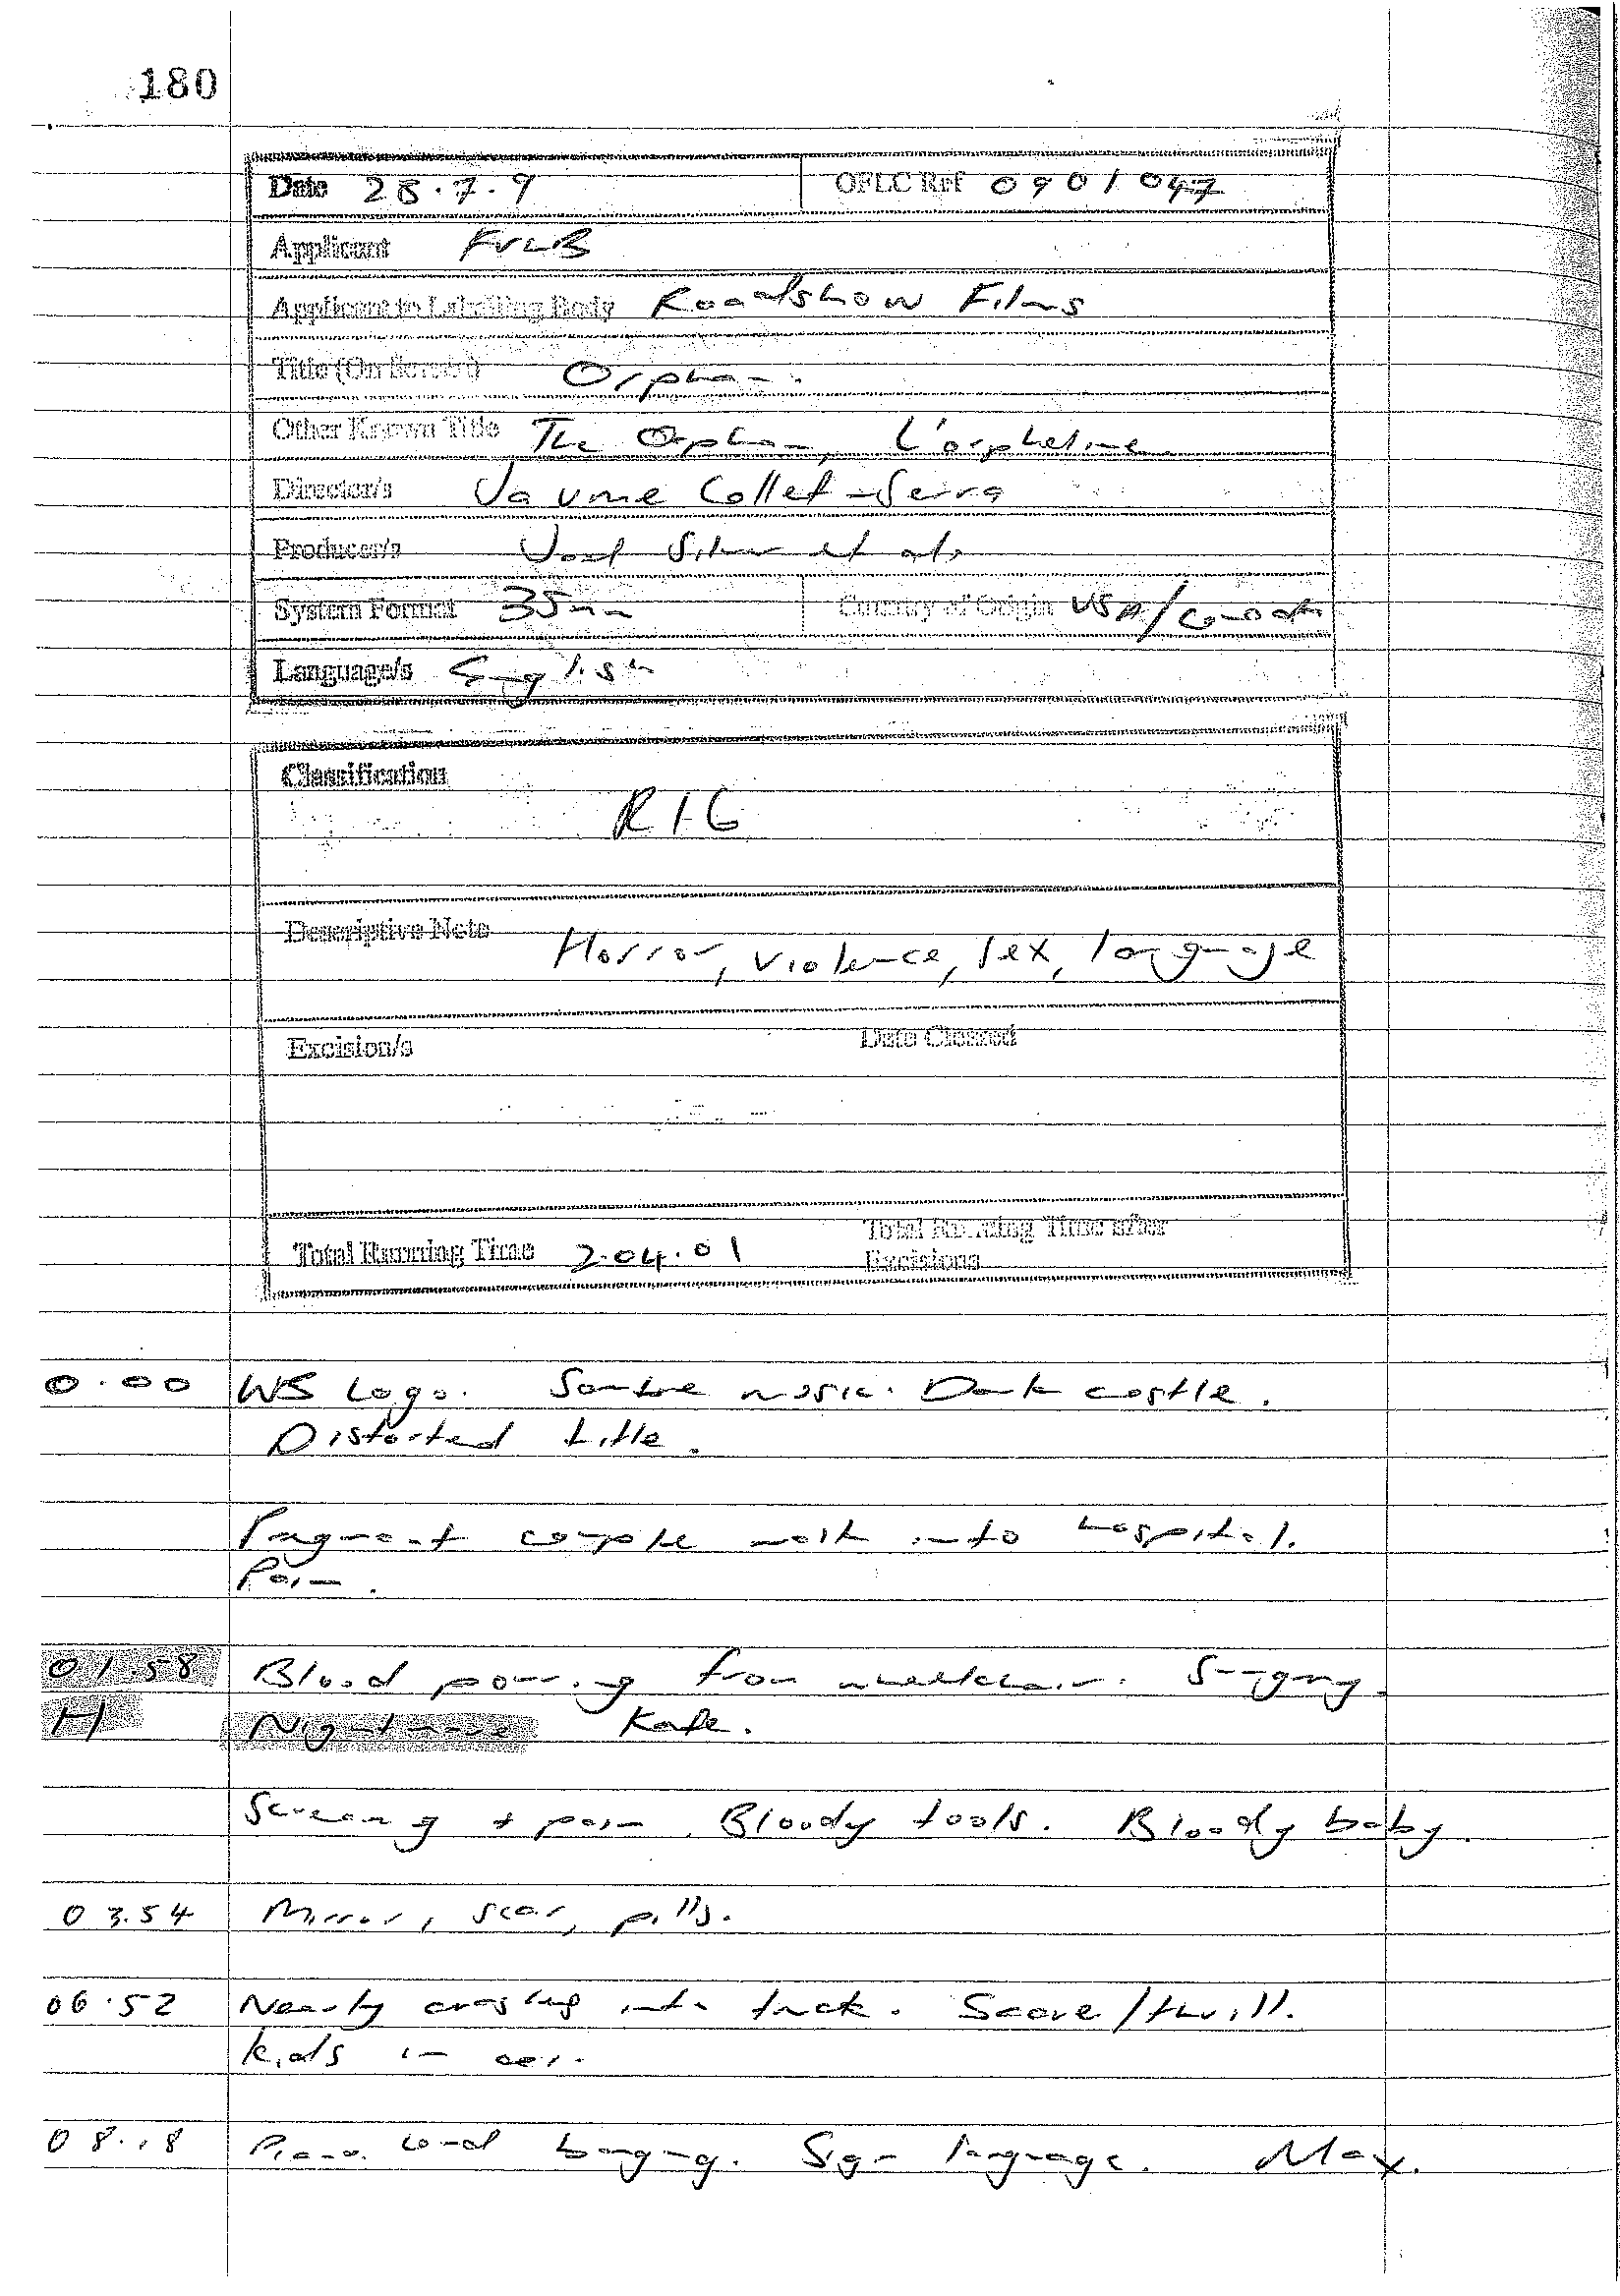 180
Date 28.7.9 OFLC Ref 0901047
Applicant FVLB
Applicant to Labelling Body Roadshow Films
Title (On Screen) Orphan.
Other Known Title The Orphan, L'orpheline
Director/s Jaume Collet-Serra
Producer/s Joel Silver et al.
System Format 35mm Country of Origin USA/Canada
Language/s English
Classification
R16
Descriptive Note Horror, violence, sex, language
Excision/s Date Cleared
Total Running Time 2.04.01 Total Running Time after
Excisions
0.00 WB Logo. Sombre music. Dark castle.
Distorted title.
Pregnant couple walk into hospital.
Pain.
01.58 Blood pouring from wheelchair. Surgery.
H Nightmare Kate.
Screaming + pain. Bloody tools. Bloody baby.
03.54 Mirror, scar, pills.
06.52 Nearly crashes into truck. Scare/thrill.
Kids in car.
08.18 Piano. Loud banging. Sign language. Max.